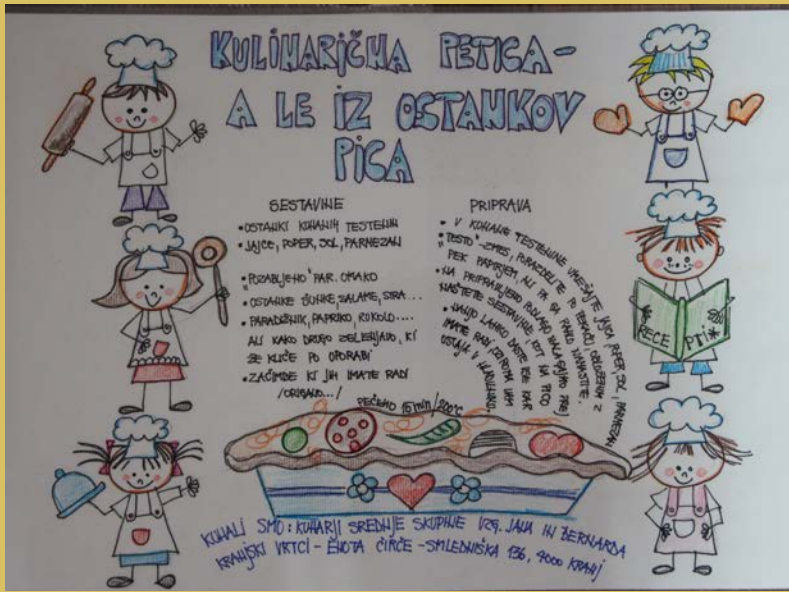 KULINARIČNA PETICA -
A LE IZ OSTANKOV
PICA
SESTAVINE
• OSTANKI KUHANIH TESTENIN
• JAJCE, POPER, SOL, PARMEZAN
• "POZABLJENO" PAR. OMAKO
• OSTANKE ŠUNKE, SALAME, SIRA...
• PARADIŽNIK, PAPRIKO, RUKOLO....
ALI KAKO DRUGO ZELENJAVO, KI
ŽE KLIČE PO UPORABI
• ZAČIMBE KI JIH IMATE RADI
/ORIGANO.../
PRIPRAVA
• V KUHANE TESTENINE VMEŠAJTE JAJCA, POPER, SOL, PARMEZAN
• "TESTO"-ZMES, PORAZDELITE PO PEKAČU OBLOŽENEM Z
PEK PAPIRJEM, ALI PA GA RAHLO NAMASTITE.
• NA PRIPRAVLJENO PODLAGO NALAGAJMO PREJ
NAŠTETE SESTAVINE, KOT NA PICO.
• NANJO LAHKO DASTE VSE KAR
IMATE RADI, OZIROMA VAM
OSTAJA V HLADILNIKU.
PEČEMO 15 min/200°C
RECEPTI*
KUHALI SMO: KUHARJI SREDNJE SKUPINE VZG. JANA IN BERNARDA
KRANJSKI VRTCI - ENOTA ČIRČE - SMLEDNIŠKA 136, 4000 KRANJ